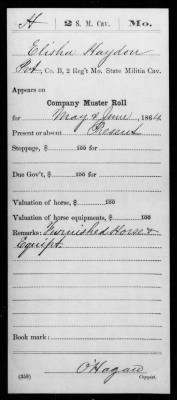 H 2 S. M. Cav. Mo.
Elisha Haydon
Pvt., Co. B, 2 Reg't Mo. State Militia Cav.
Appears on
Company Muster Roll
for May & June, 1864.
Present or absent Present
Stoppage, $ 100 for
Due Gov't, $ 100 for
Valuation of horse, $ 100
Valuation of horse equipments, $ 100
Remarks: Furnished Horse &
Equipt.
Book mark:
O'Hagan
(359) Copyist.